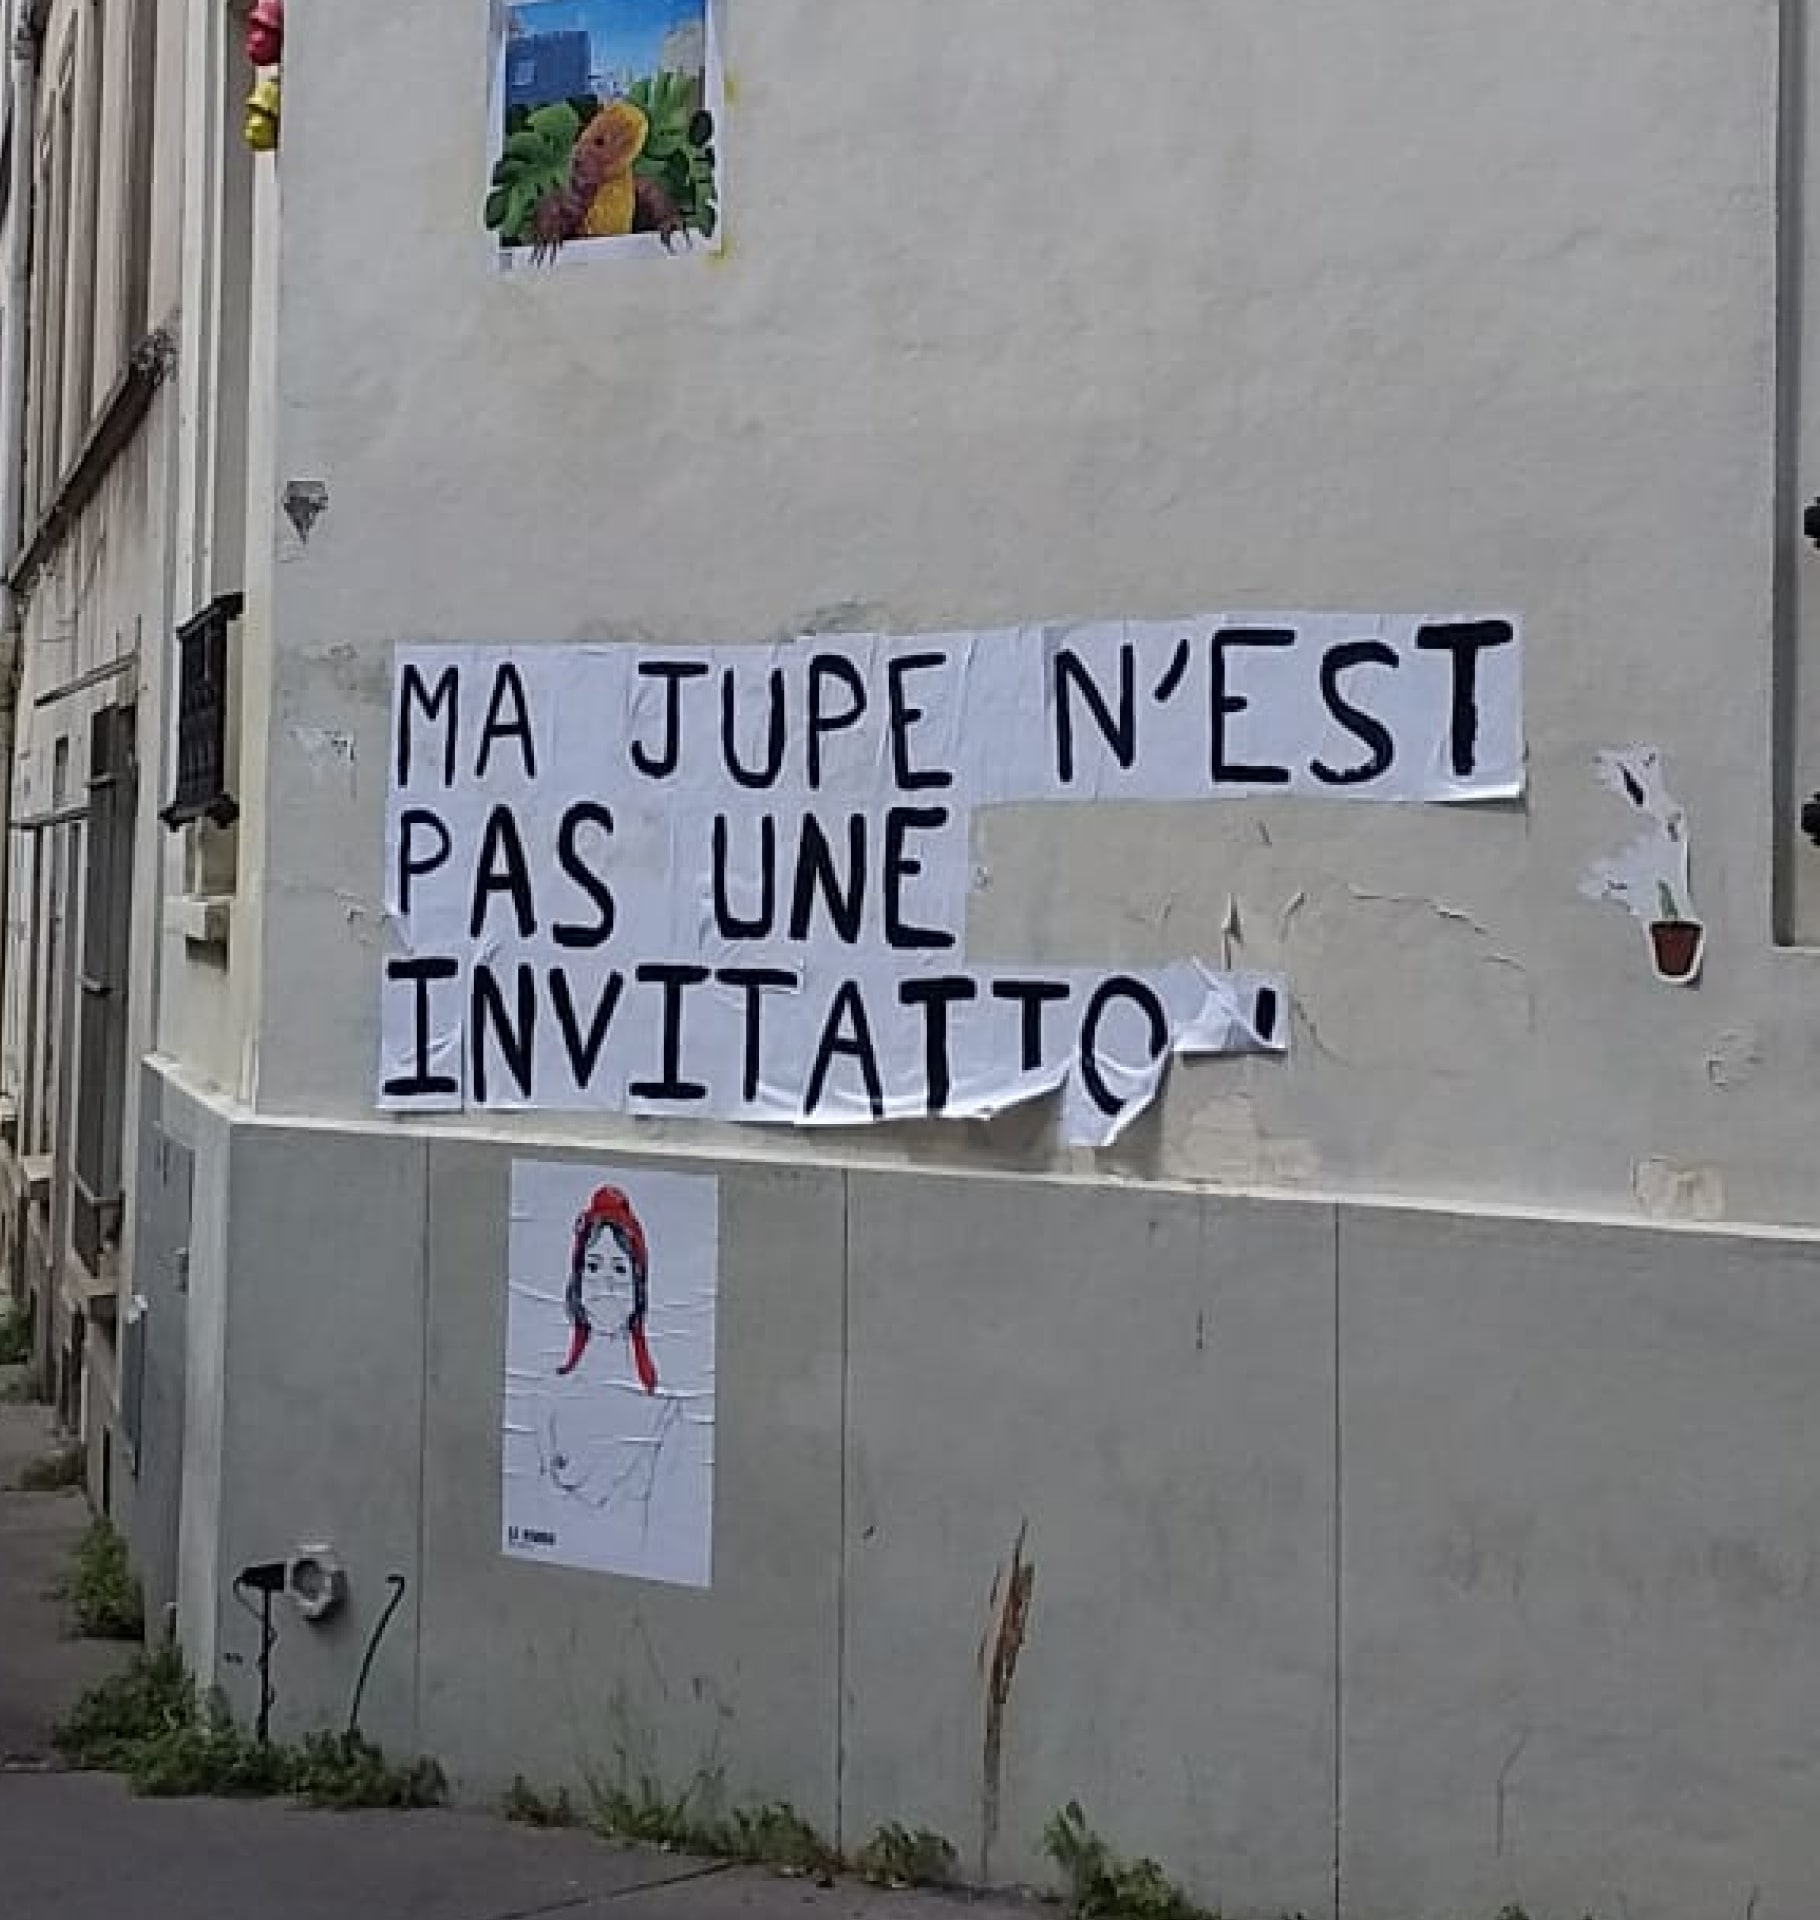 MA JUPE N'EST
PAS UNE
INVITATION